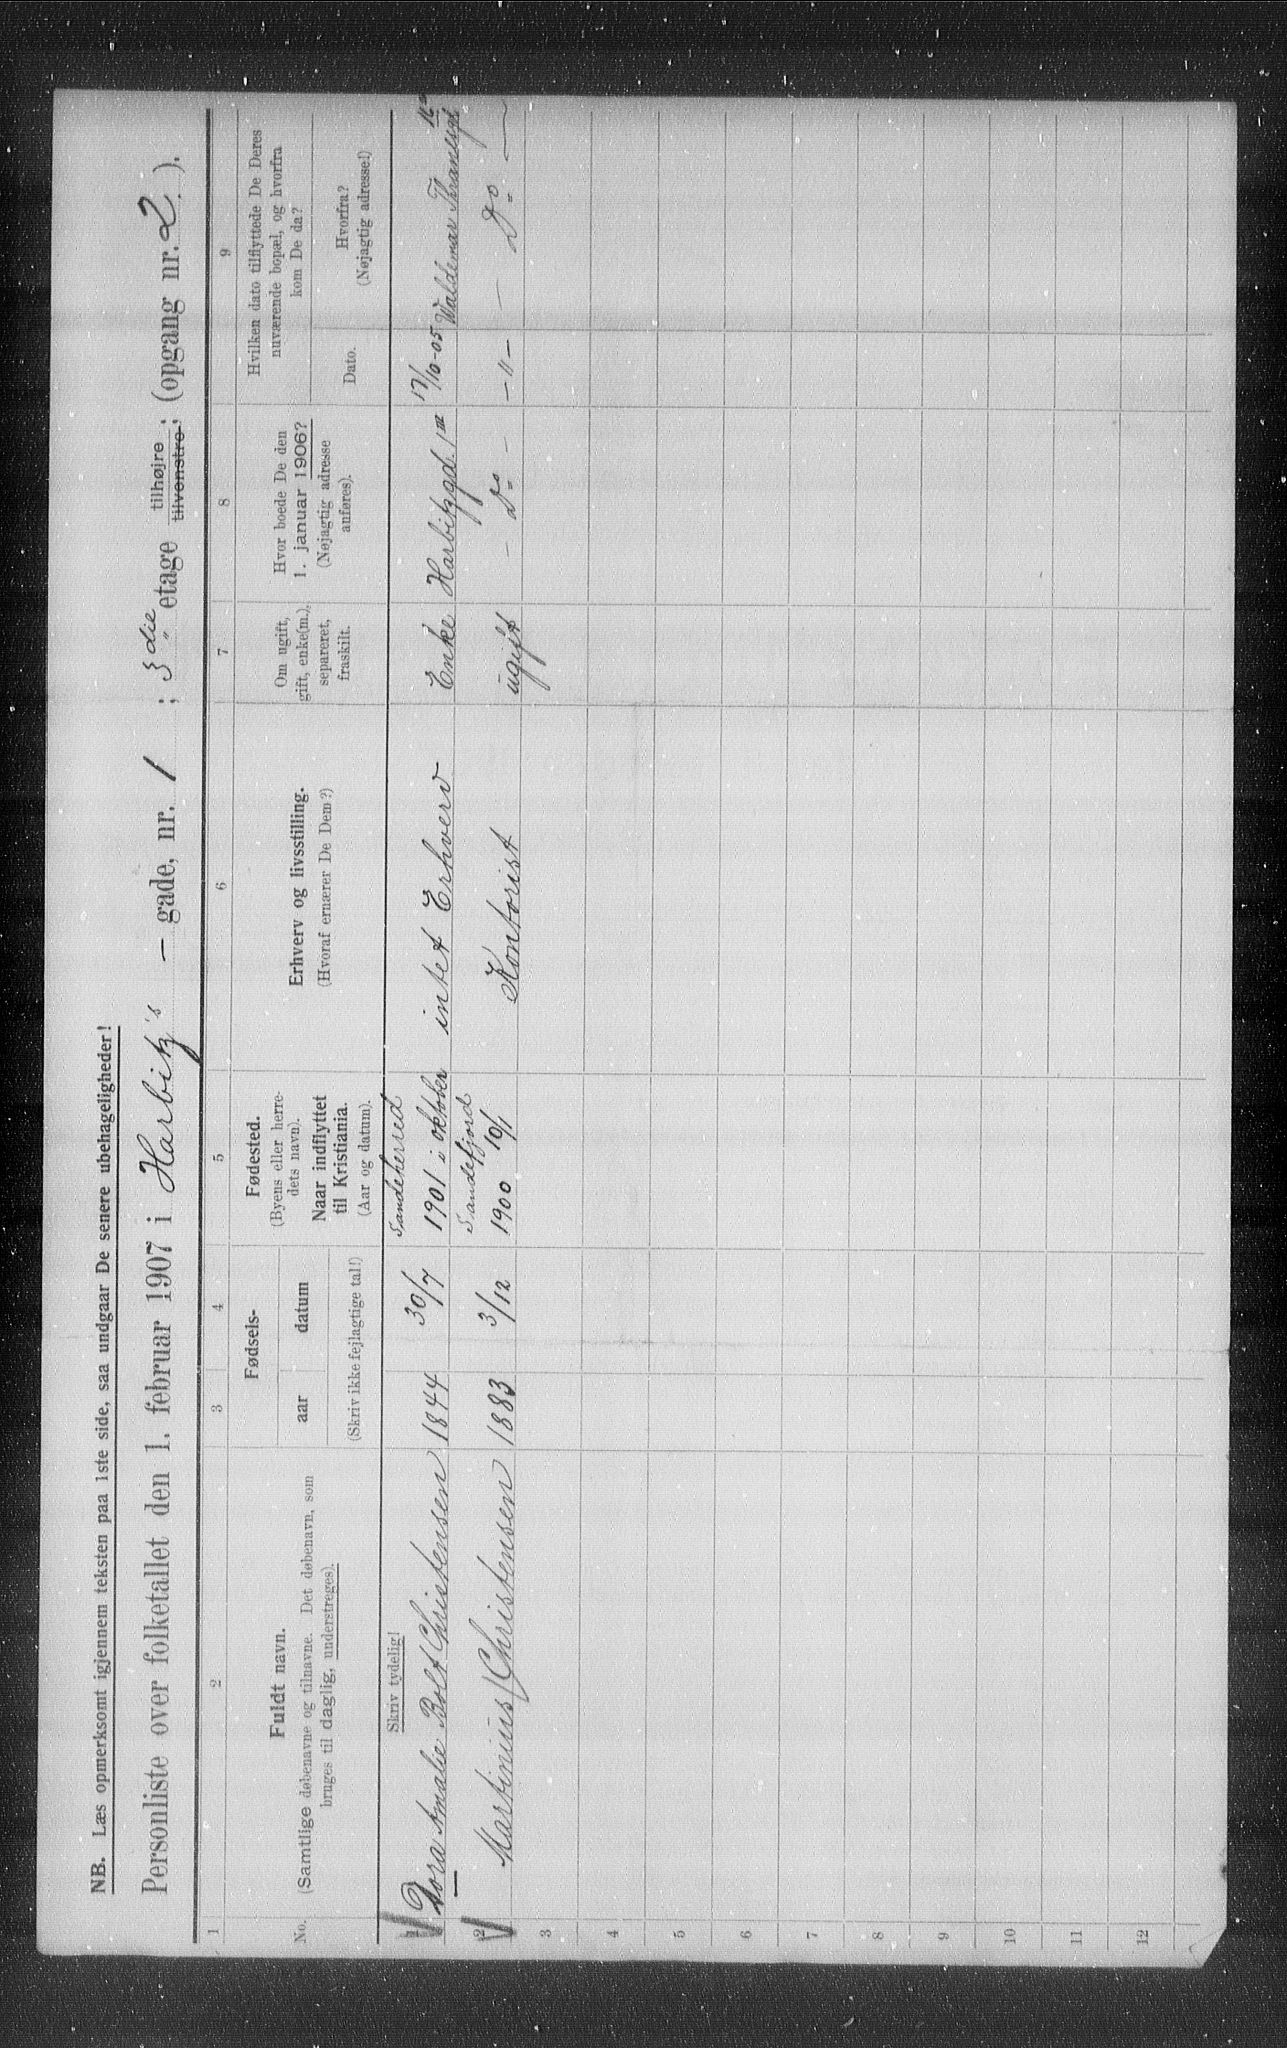 NB. Læs opmerksomt igjennem teksten paa 1ste side, saa undgaar De senere ubehageligheder!
Personliste over folketallet den 1. februar 1907 i Harbitz's – gade, nr. 1 ; 3die etage tilhøjre tilvenstre; (opgang nr. 2 ).
1 2 3 4 5 6 7 8 9
No.
Fuldt navn.
(Samtlige døbenavne og tilnavne. Det døbenavn, som
bruges til daglig, understreges).
Fødsels-
aar datum
(Skriv ikke fejlagtige tal!)
Fødested.
(Byens eller herre-
dets navn).
Naar indflyttet
til Kristiania.
(Aar og datum).
Erhverv og livsstilling.
(Hvoraf ernærer De Dem?)
Om ugift,
gift, enke(m.),
separeret,
fraskilt.
Hvor boede De den
1. januar 1906?
(Nøjagtig adresse
anføres).
Hvilken dato tilflyttede De Deres
nuværende bopæl, og hvorfra
kom De da?
Dato.
Hvorfra?
(Nøjagtig adresse!)
Skriv tydelig!
1 Dora Amalie Bolt Christensen 1844 30/7 Sandeherred 1901 i oktober intet Erhverv Enke Harbitzgd. 1 17/10-05 Waldemar Thranesgt
2 Martinius Christensen 1883 3/12 Sandefjord 1900 10/1 Kontorist ugift – Do – – " – – Do –
3
4
5
6
7
8
9
10
11
12